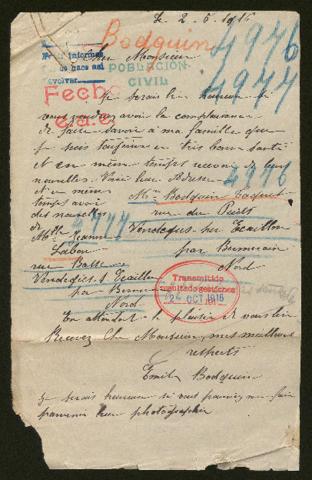 Le 2-6-1916
Bodquin
4976
4977
Cher Monsieur
Pide informes
de hace así
devolver
POBLACION
CIVIL
Fecha
je serais heureux si
vous vouliez avoir la complaisance
de faire savoir à ma famille que
je suis toujours en très bonne santé
et en même temps recevoir de leurs
nouvelles. Voici leur adresse
4976
Me Bodquin Taquet
rue du Puits
Vendegies sur Ecaillon
par Bermerain
Nord
et en même
temps avoir
des nouvelles
de
4977
Melle Jeanne
Labou
rue Basse
Vendegies s/ Ecaillon
par Bermerain
Nord
Transmitido
resultado gestiones
24 OCT 1916
En attendant le plaisir de vous lire
Recevez Cher Monsieur, mes meilleurs
respects
Emile Bodquin
je serais heureux si vous pouviez me faire
parvenir leur photographie